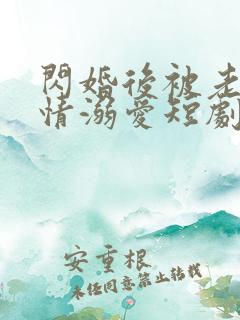 閃婚後被老
情溺愛短劇
安重根
未經同意禁止轉載